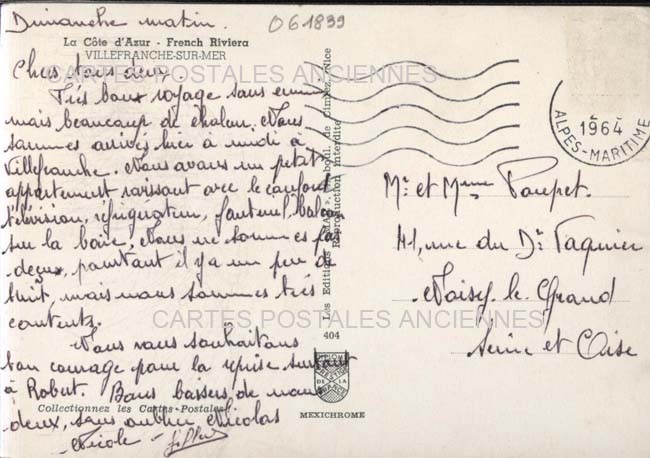 Dimanche matin.
061899
La Côte d'Azur - French Riviera
VILLEFRANCHE-SUR-MER
CARTES POSTALES ANCIENNES
Chers tous deux.
Très bons voyage sans ennui
mais beaucoup de chaleur. Nous
sommes arrivés hier à midi à
Villefranche. Nous avons un petit
appartement ravissant avec le confort
télévision, réfrigérateur, fauteuil, balcon
sur la baie, Nous ne sommes pas
déçus, pourtant il y a un peu de
bruit, mais nous sommes très
contents.
Nous vous souhaitons
bon courage pour la reprise surtout
à Robert. Bons baisers de nous
deux, sans oublier Nicolas
Nicole -
Collectionnez les Cartes-Postales
Les Editions "MAR", boul. de Cimiez, Nice
Reproduction interdite
404
MEXICHROME
1964
ALPES-MARITIME
Mr. et Mme Poupet.
41, rue du Dr Vaquier
Noisy le Grand
Seine et Oise
CARTES POSTALES ANCIENNES